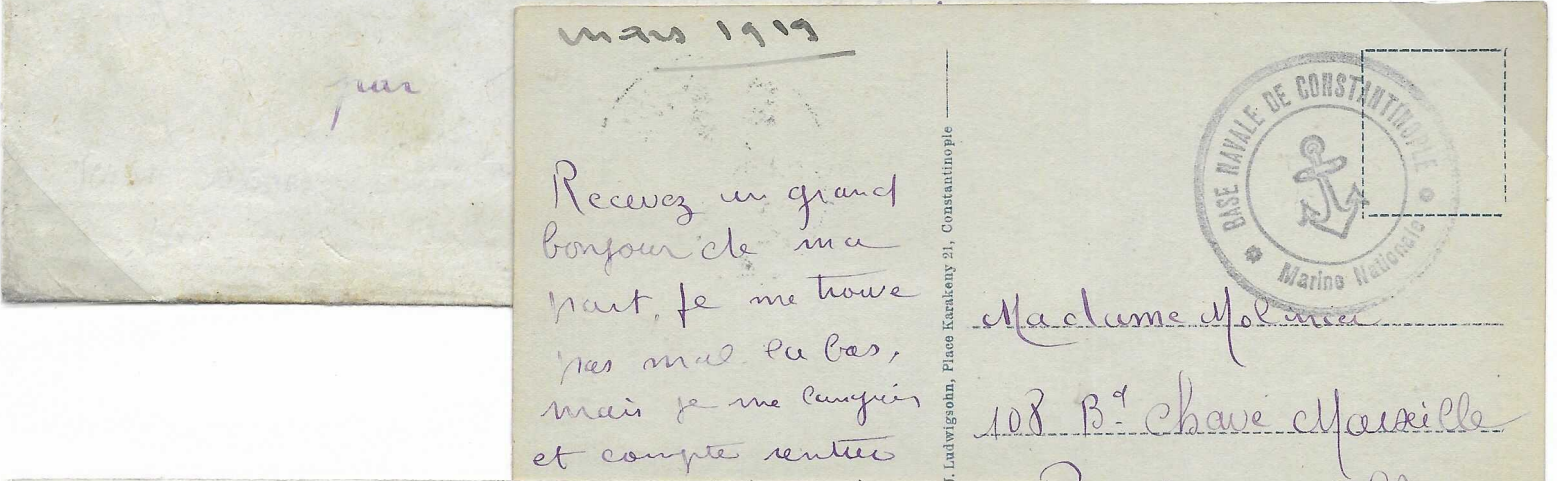 par
mars 1919
Recevez un grand
bonjour de ma
part. Je me trouve
pas mal la bas,
mais je me languis
et compte rentrer
J. Ludwigsohn, Place Karakeny 21, Constantinople
BASE NAVALE DE CONSTANTINOPLE
Marine Nationale
Madame Molinier
108 Bd Chave Marseille